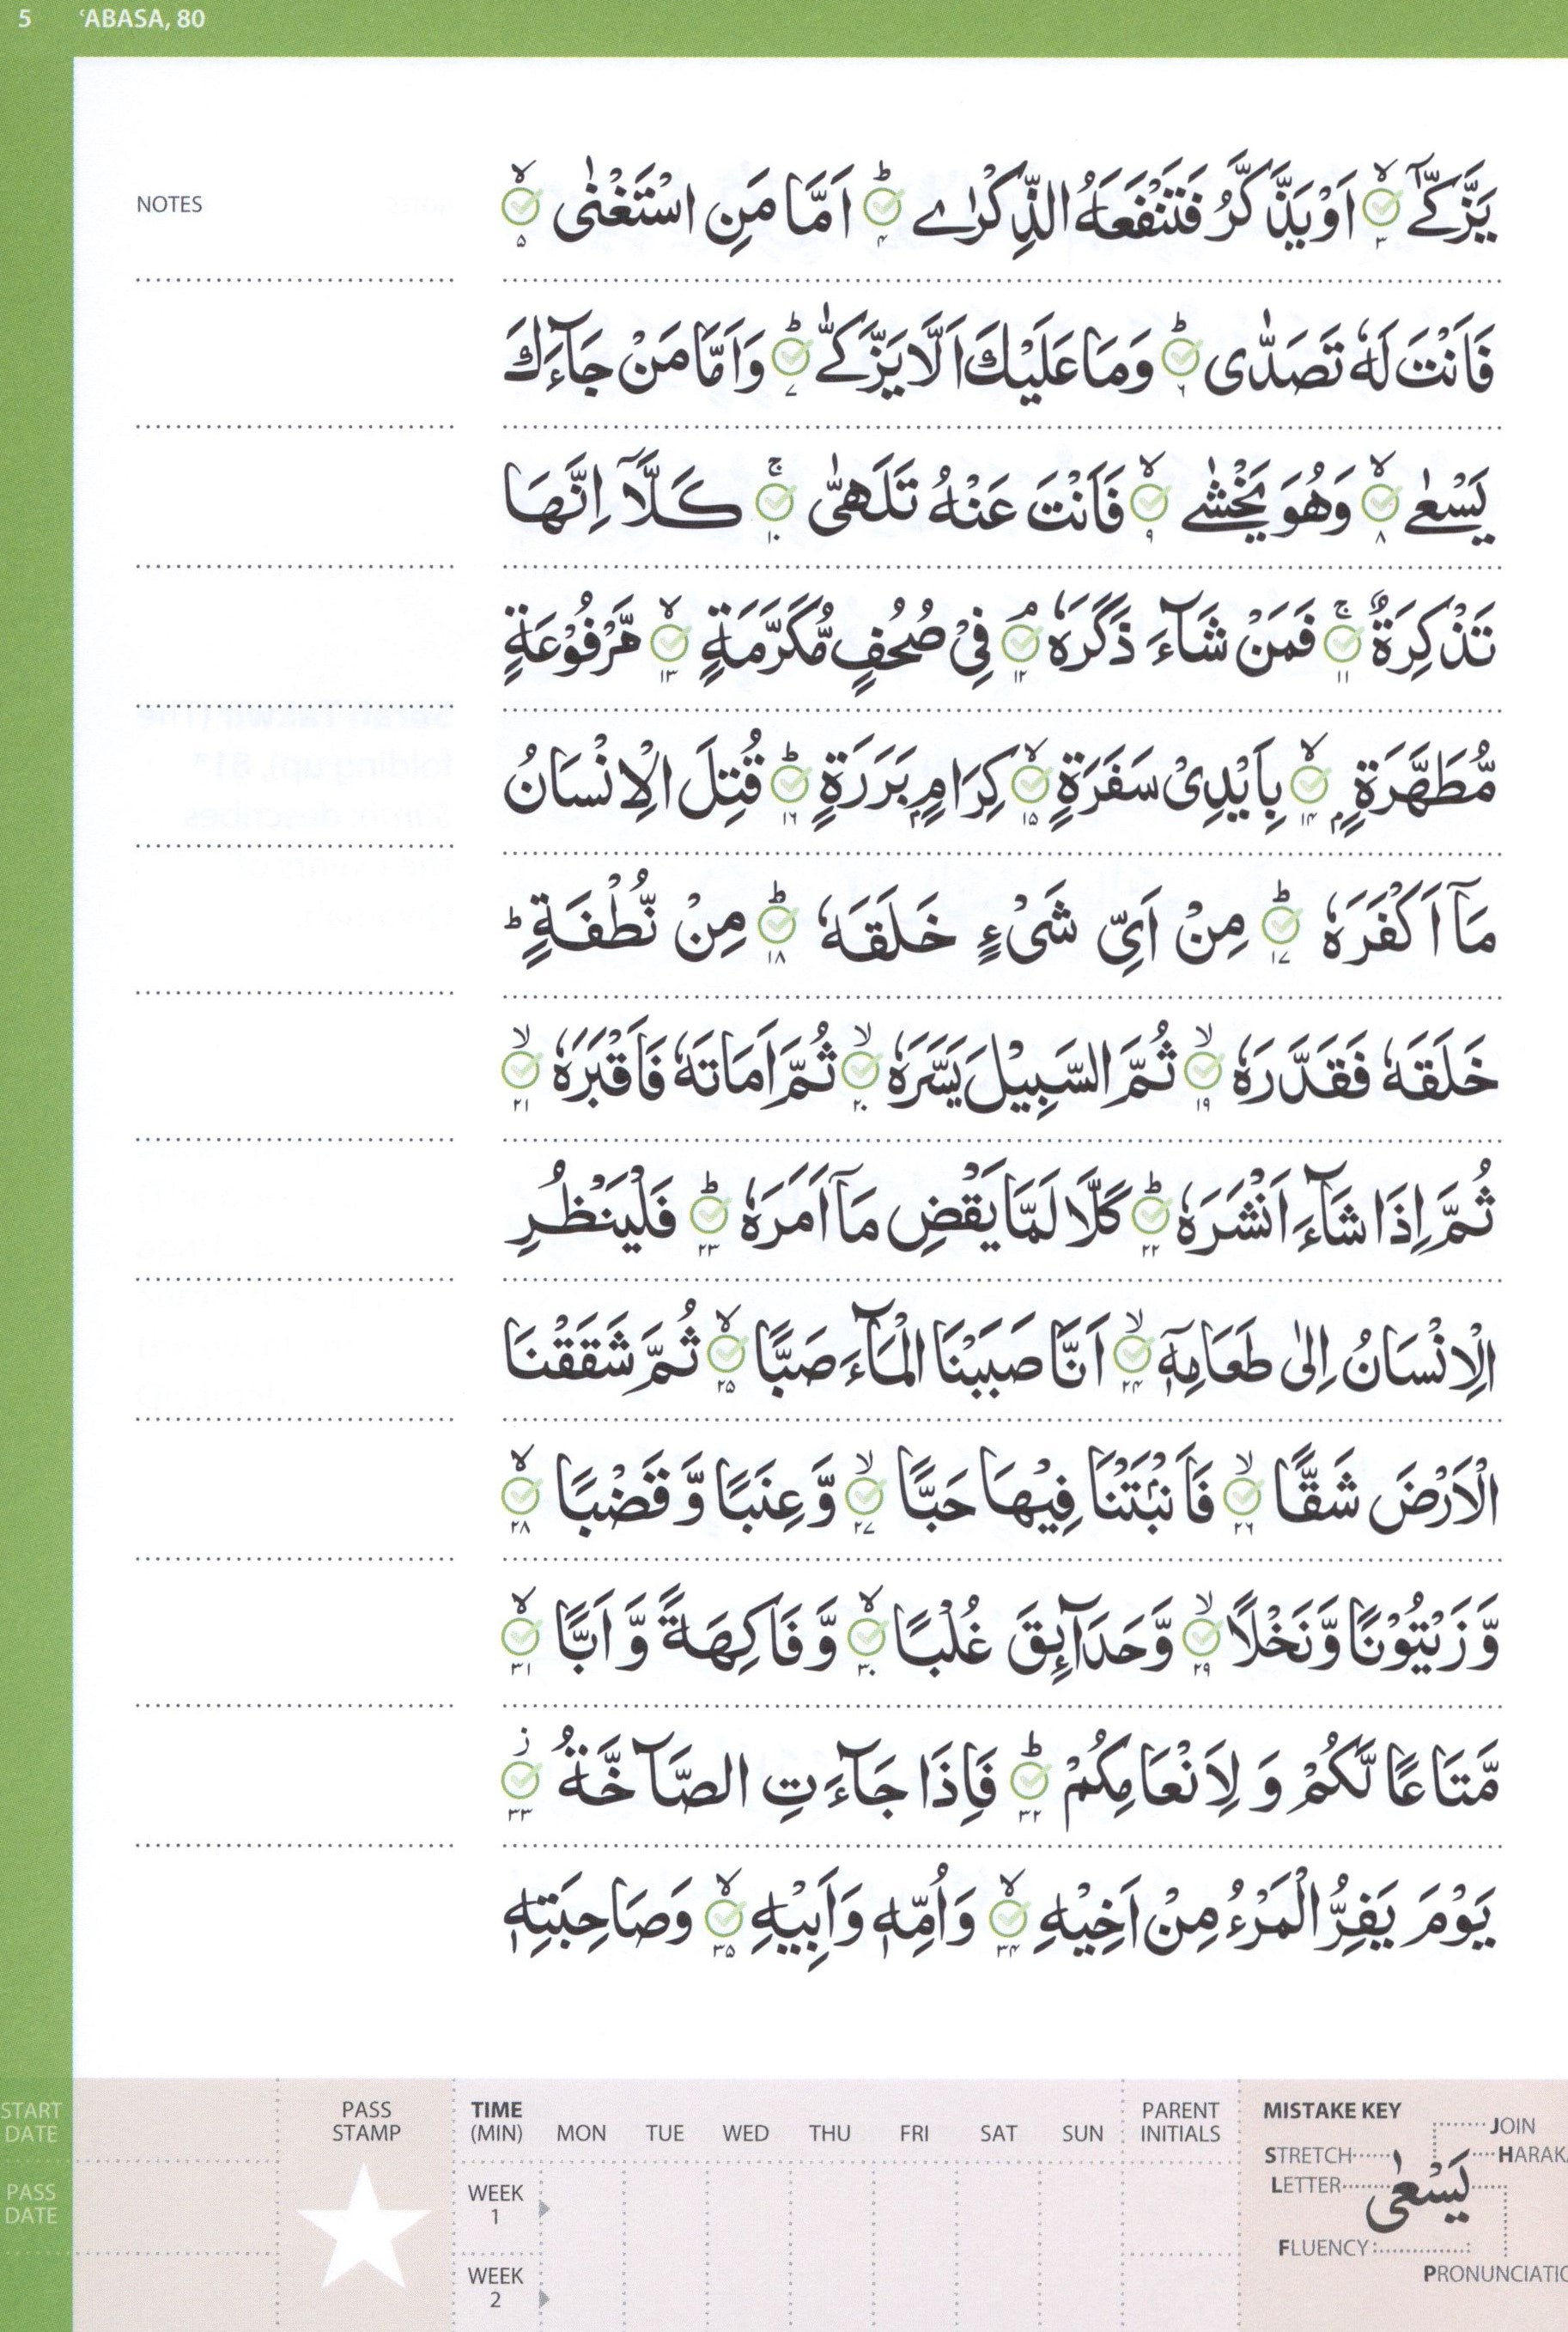 5 ʿABASA, 80
NOTES
يَزَّكّٰىٓ ۙ‏﴿۳﴾ اَوْ يَذَّكَّرُ فَتَنْفَعَهُ الذِّكْرٰى ؕ‏﴿۴﴾ اَمَّا مَنِ اسْتَغْنٰى ۙ‏﴿۵﴾
فَاَنْتَ لَهٗ تَصَدّٰى ؕ‏﴿۶﴾ وَمَا عَلَيْكَ اَلَّا يَزَّكّٰى ؕ‏﴿۷﴾ وَاَمَّا مَنْ جَآءَكَ
يَسْعٰى ۙ‏﴿۸﴾ وَهُوَ يَخْشٰى ۙ‏﴿۹﴾ فَاَنْتَ عَنْهُ تَلَهّٰى ۚ‏﴿۱۰﴾ كَلَّاۤ اِنَّهَا
تَذْكِرَةٌ ۚ‏﴿۱۱﴾ فَمَنْ شَآءَ ذَكَرَهٗ ۘ‏﴿۱۲﴾ فِىْ صُحُفٍ مُّكَرَّمَةٍ ۙ‏﴿۱۳﴾ مَّرْفُوْعَةٍ
مُّطَهَّرَةٍۭ ۙ‏﴿۱۴﴾ بِاَيْدِىْ سَفَرَةٍ ۙ‏﴿۱۵﴾ كِرَامٍۭ بَرَرَةٍ ؕ‏﴿۱۶﴾ قُتِلَ الْاِنْسَانُ
مَاۤ اَكْفَرَهٗ ؕ‏﴿۱۷﴾ مِنْ اَىِّ شَىْءٍ خَلَقَهٗ ؕ‏﴿۱۸﴾ مِنْ نُّطْفَةٍ ؕ
خَلَقَهٗ فَقَدَّرَهٗ ۙ‏﴿۱۹﴾ ثُمَّ السَّبِيْلَ يَسَّرَهٗ ۙ‏﴿۲۰﴾ ثُمَّ اَمَاتَهٗ فَاَقْبَرَهٗ ۙ‏﴿۲۱﴾
ثُمَّ اِذَا شَآءَ اَنْشَرَهٗ ؕ‏﴿۲۲﴾ كَلَّا لَمَّا يَقْضِ مَاۤ اَمَرَهٗ ؕ‏﴿۲۳﴾ فَلْيَنْظُرِ
الْاِنْسَانُ اِلٰى طَعَامِهٖۤ ۙ‏﴿۲۴﴾ اَنَّا صَبَبْنَا الْمَآءَ صَبًّا ۙ‏﴿۲۵﴾ ثُمَّ شَقَقْنَا
الْاَرْضَ شَقًّا ۙ‏﴿۲۶﴾ فَاَنْۢبَتْنَا فِيْهَا حَبًّا ۙ‏﴿۲۷﴾ وَّعِنَبًا وَّقَضْبًا ۙ‏﴿۲۸﴾
وَّزَيْتُوْنًا وَّنَخْلًا ۙ‏﴿۲۹﴾ وَّحَدَآئِقَ غُلْبًا ۙ‏﴿۳۰﴾ وَّفَاكِهَةً وَّاَبًّا ۙ‏﴿۳۱﴾
مَّتَاعًا لَّكُمْ وَلِاَنْعَامِكُمْ ؕ‏﴿۳۲﴾ فَاِذَا جَآءَتِ الصَّآخَّةُ ؗ‏﴿۳۳﴾
يَوْمَ يَفِرُّ الْمَرْءُ مِنْ اَخِيْهِ ۙ‏﴿۳۴﴾ وَاُمِّهٖ وَاَبِيْهِ ۙ‏﴿۳۵﴾ وَصَاحِبَتِهٖ
START DATE
PASS DATE
PASS STAMP
TIME (MIN) MON TUE WED THU FRI SAT SUN PARENT INITIALS
WEEK 1
WEEK 2
MISTAKE KEY
JOIN
STRETCH HARAK
LETTER
يَسْعٰى
FLUENCY
PRONUNCIATIO